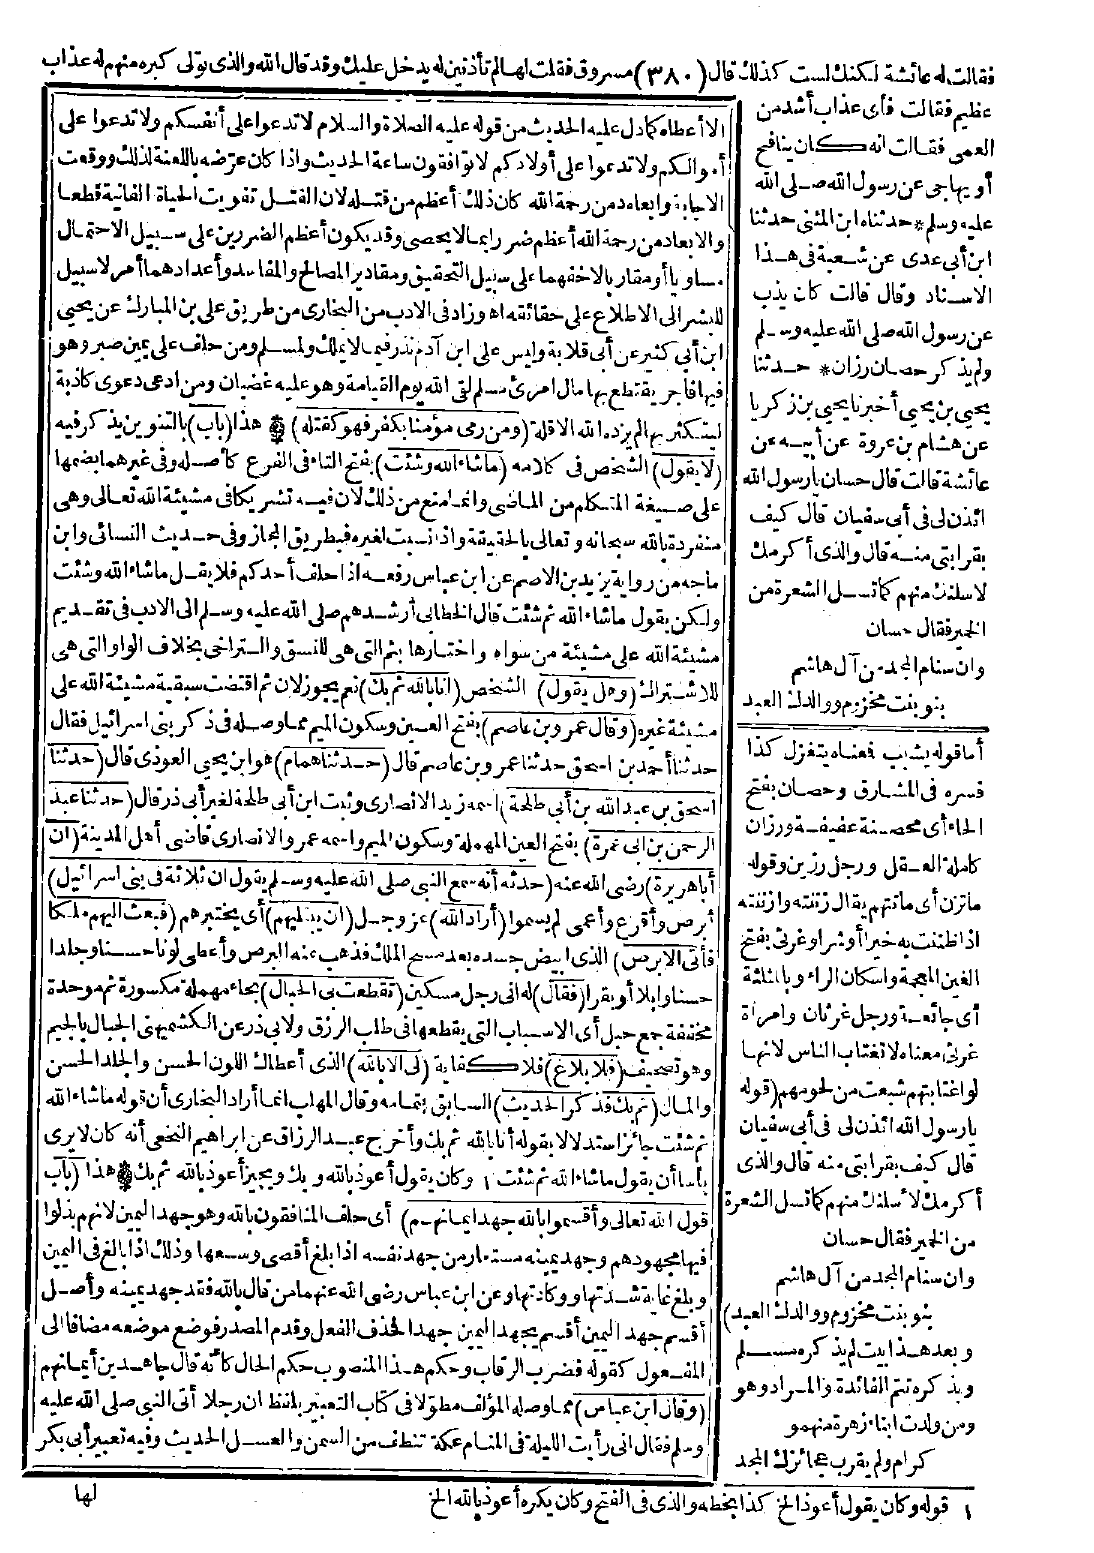 فقالت له عائشة لكنك لست كذلك قال (٣٨٠) مسروق فقلت لها لم تأذنين له يدخل عليك وقد قال الله والذي تولى كبره منهم له عذاب
عظيم فقالت فأى عذاب أشد من
العمى فقالت انه كان ينافح
أو يهاجى عن رسول الله صلى الله
عليه وسلم * حدثناه ابن المثنى حدثنا
ابن أبى عدى عن شعبة فى هذا
الاسناد وقال قالت كان يذب
عن رسول الله صلى الله عليه وسلم
ولم يذكر حصان رزان * حدثنا
يحيى بن يحيى أخبرنا يحيى بن زكريا
عن هشام بن عروة عن أبيه عن
عائشة قالت قال حسان يارسول الله
ائذن لى فى أبى سفيان قال كيف
بقرابتى منه قال والذى أكرمك
لاسلنك منهم كما تسل الشعرة من
الخمير فقال حسان
وان سنام المجد من آل هاشم
بنو بنت مخزوم ووالدك العبد
أما قوله يشبب فمعناه يتغزل كذا
فسره فى المشارق وحصان بفتح
الحاء أى محصنة عفيفة ورزان
كاملة العقل ورجل رزين وقوله
ماتزن أى ماتتهم يقال زننته وأزننته
اذا ظننت به خيرا أو شرا وغرثى بفتح
الغين المعجمة واسكان الراء وبالمثلثة
أى جائعة ورجل غرثان وامرأة
غرثى معناه لاتغتاب الناس لانها
لو اغتابتهم شبعت من لحومهم (قوله
يارسول الله ائذن لى فى أبى سفيان
قال كيف بقرابتى منه قال والذى
أكرمك لأسلنك منهم كما تسل الشعرة
من الخمير فقال حسان
وان سنام المجد من آل هاشم
بنو بنت مخزوم ووالدك العبد)
وبعد هذا بيت لم يذكره مسلم
وبذكره تتم الفائدة والمراد وهو
ومن ولدت ابناء زهرة منهمو
كرام ولم يقرب عجائزك المجد
الا أعطاه كما دل عليه الحديث من قوله عليه الصلاة والسلام لا تدعوا على أنفسكم ولا تدعوا على
أموالكم ولا تدعوا على أولادكم لا توافقون ساعة الحديث واذا كان عرّضه باللعنة لذلك ووقعت
الاجابة وابعاده من رحمة الله كان ذلك أعظم من قتله لان القتل تفويت الحياة الفانية قطعا
والابعاد من رحمة الله أعظم ضررا بما لا يحصى وقد يكون أعظم الضررين على سبيل الاحتمال
مساويا أو مقاربا لاخفهما على سبيل التحقيق ومقادير المصالح والمفاسد وأعدادهما أمر لا سبيل
للبشر الى الاطلاع على حقائقه اه وزاد فى الادب من البخارى من طريق على بن المبارك عن يحيى
ابن أبى كثير عن أبى قلابة وليس على ابن آدم نذر فيما لا يملك ولمسلم ومن حلف على يمين صبر وهو
فيها فاجر يقتطع بها مال امرئ مسلم لقى الله يوم القيامة وهو عليه غضبان ومن ادعى دعوى كاذبة
ليتكثر بها لم يزده الله الا قلة (ومن رمى مؤمنا بكفر فهو كقتله) ۞ هذا (باب) بالتنوين يذكر فيه
(لا يقول) الشخص فى كلامه (ماشاء الله وشئت) بفتح التاء فى الفرع كأصله وفى غيرهما بضمها
على صيغة المتكلم من الماضى وانما منع من ذلك لان فيه تشريكا فى مشيئة الله تعالى وهى
منفردة بالله سبحانه وتعالى بالحقيقة واذا نسبت لغيره فبطريق المجاز وفى حديث النسائى وابن
ماجه من رواية يزيد بن الاصم عن ابن عباس رفعه اذا حلف أحدكم فلا يقل ماشاء الله وشئت
ولكن يقول ماشاء الله ثم شئت قال الخطابى أرشدهم صلى الله عليه وسلم الى الادب فى تقديم
مشيئة الله على مشيئة من سواه واختارها بثم التى هى للنسق والتراخى بخلاف الواو التى هى
للاشتراك (وهل يقول) الشخص (انا بالله ثم بك) نعم يجوز لان ثم اقتضت سبقية مشيئة الله على
مشيئة غيره (وقال عمرو بن عاصم) بفتح العين وسكون الميم مما وصله فى ذكر بنى اسرائيل فقال
حدثنا أحمد بن اسحق حدثنا عمرو بن عاصم قال (حدثنا همام) هو ابن يحيى العوذى قال (حدثنا
اسحق بن عبد الله بن أبى طلحة) اسمه زيد الانصارى وثبت ابن أبى طلحة لغير أبى ذر قال (حدثنا عبد
الرحمن بن أبى عمرة) بفتح العين المهملة وسكون الميم واسمه عمرو الانصارى قاضى أهل المدينة (ان
أبا هريرة) رضى الله عنه (حدثه أنه سمع النبى صلى الله عليه وسلم يقول ان ثلاثة فى بنى اسرائيل)
أبرص وأقرع وأعمى لم يسموا (أراد الله) عز وجل (ان يبتليهم) أى يختبرهم (فبعث اليهم ملكا
فأتى الابرص) الذى ابيض جسده بعد مسح الملك فذهب عنه البرص وأعطى لونا حسنا وجلدا
حسنا وابلا أو بقرا (فقال) له انى رجل مسكين (تقطعت بى الحبال) بحاء مهملة مكسورة ثم موحدة
مخففة جمع حبل أى الاسباب التى يقطعها فى طلب الرزق ولابى ذر عن الكشميهنى الجبال بالجيم
وهو تصحيف (فلا بلاغ) فلا كفاية (لى الا بالله) الذى أعطاك اللون الحسن والجلد الحسن
والمال (ثم بك فذكر الحديث) السابق بتمامه وقال المهلب انما أراد البخارى أن قوله ماشاء الله
ثم شئت جائز استدلالا بقوله أنا بالله ثم بك وأخرج عبد الرزاق عن ابراهيم النخعى أنه كان لا يرى
بأسا أن يقول ماشاء الله ثم شئت ١ وكان يقول أعوذ بالله وبك ويجيز أعوذ بالله ثم بك ۞ هذا (باب
قول الله تعالى وأقسموا بالله جهد ايمانهم) أى حلف المنافقون بالله وهو جهد اليمين لانهم بذلوا
فيها مجهودهم وجهد يمينه مستعار من جهد نفسه اذا بلغ أقصى وسعها وذلك اذا بالغ فى اليمين
وبلغ غاية شدتها ووكادتها وعن ابن عباس رضى الله عنهما من قال بالله فقد جهد يمينه وأصل
أقسم جهد اليمين أقسم يجهد اليمين جهدا فحذف الفعل وقدم المصدر فوضع موضعه مضافا الى
المفعول كقوله فضرب الرقاب وحكم هذا المنصوب حكم الحال كأنه قال جاهدين أيمانهم
(وقال ابن عباس) مما وصله المؤلف مطوّلا فى كتاب التعبير بلفظ ان رجلا أتى النبى صلى الله عليه
وسلم فقال انى رأيت الليلة فى المنام عكة تنطف من السمن والعسل الحديث وفيه تعبير أبى بكر
لها
١ قوله وكان يقول أعوذ الخ كذا بخطه والذى فى الفتح وكان يكره أعوذ بالله الخ